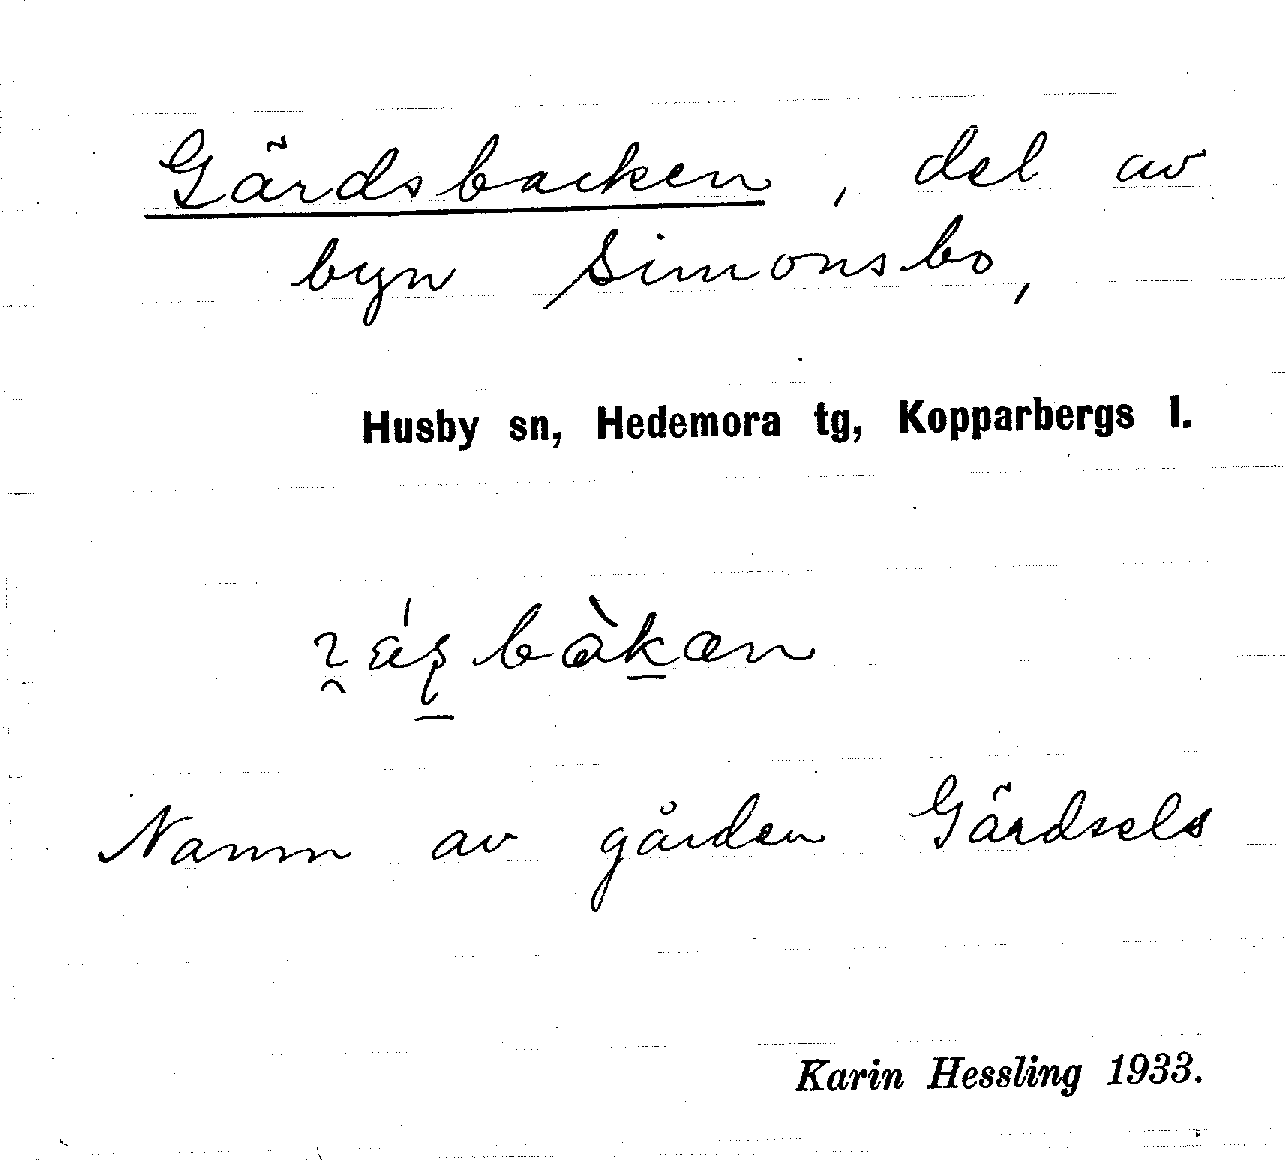 Gärdsbacken, del av
byn Simonsbo,
Husby sn, Hedemora tg, Kopparbergs l.
Namn av gården Gärdsels
Karin Hessling 1933.